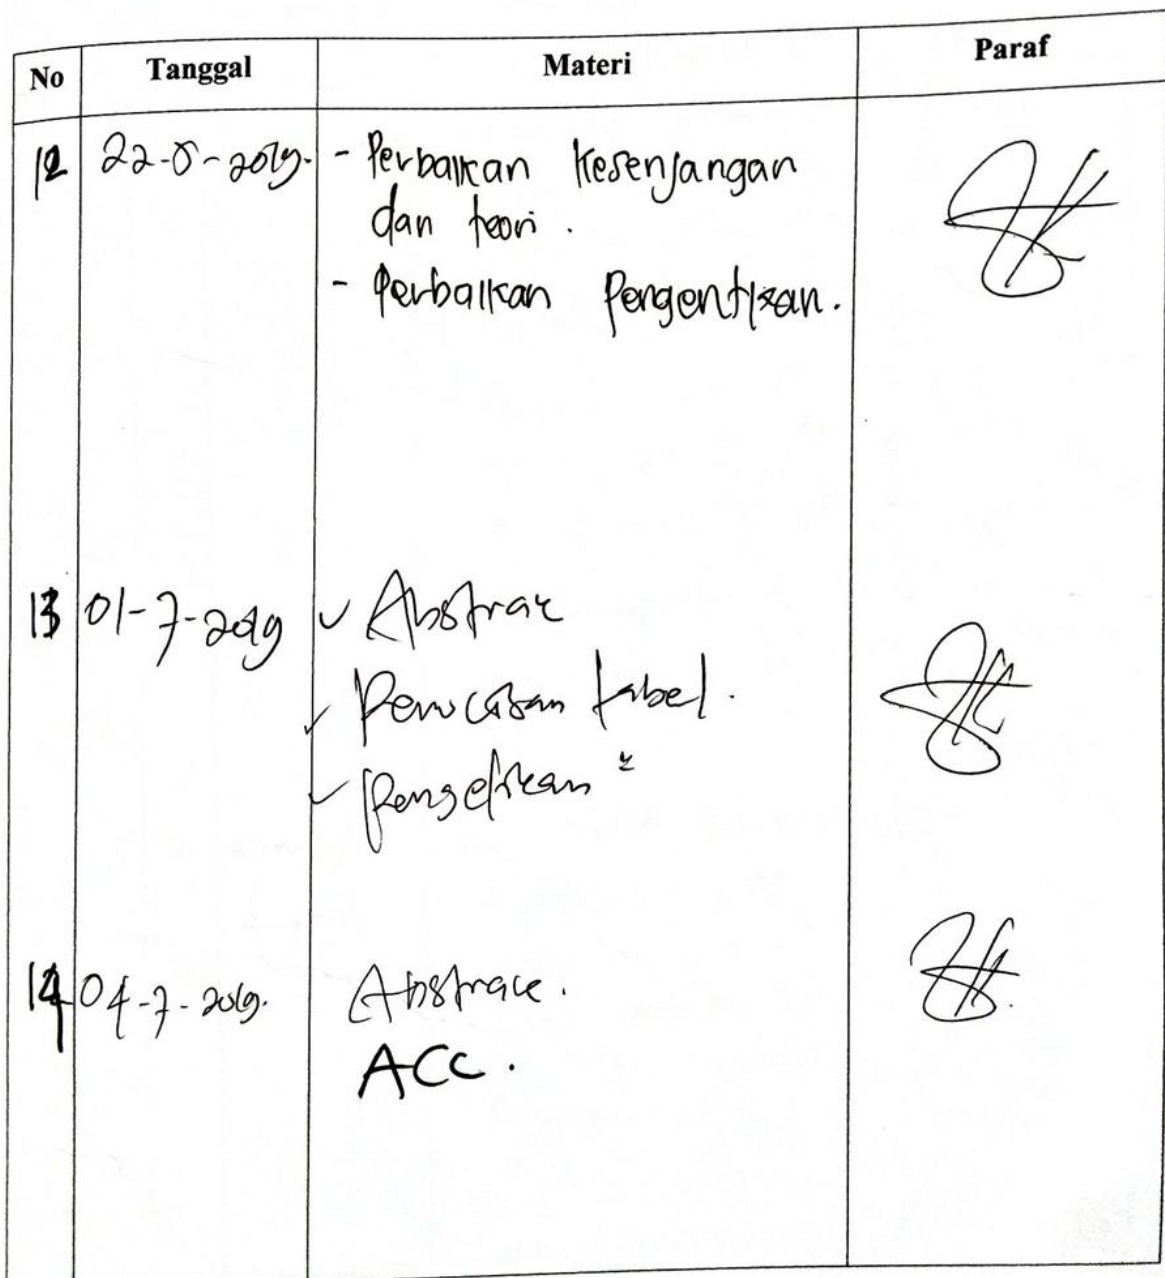 No Tanggal Materi Paraf
12 22-5-2019. - Perbaikan Kesenjangan
dan teori.
- Perbaikan Pengentikan.
13 01-7-2019 ✓ Abstrak
✓ Penulisan tabel.
✓ Pengetikan
14 04-7-2019. Abstrak.
ACC.